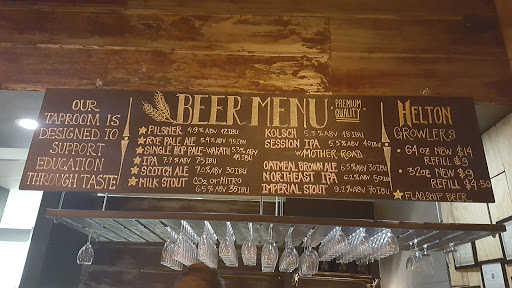 OUR
TAPROOM IS
DESIGNED TO
SUPPORT
EDUCATION
THROUGH TASTE
BEER MENU
PREMIUM
QUALITY
PILSNER 4.9% ABV 12 IBU
RYE PALE ALE 5.9% ABV 45 IBU
SINGLE HOP PALE-WAKATU 5.7% ABV
45 IBU
IPA 7.7% ABV 75 IBU
SCOTCH ALE 7.0% ABV 30 IBU
MILK STOUT CO2 or NITRO
6.5% ABV 35 IBU
KOLSCH 5.3% ABV 18 IBU
SESSION IPA 5.5% ABV 40 IBU
W/MOTHER-ROAD
OATMEAL BROWN ALE 6.5% ABV 30 IBU
NORTHEAST IPA 6.2% ABV 50 IBU
IMPERIAL STOUT 9.2% ABV 70 IBU
HELTON
GROWLERS
64 oz NEW $14
REFILL $9
32oz NEW $9
REFILL $4.50
FLAGSHIP BEER